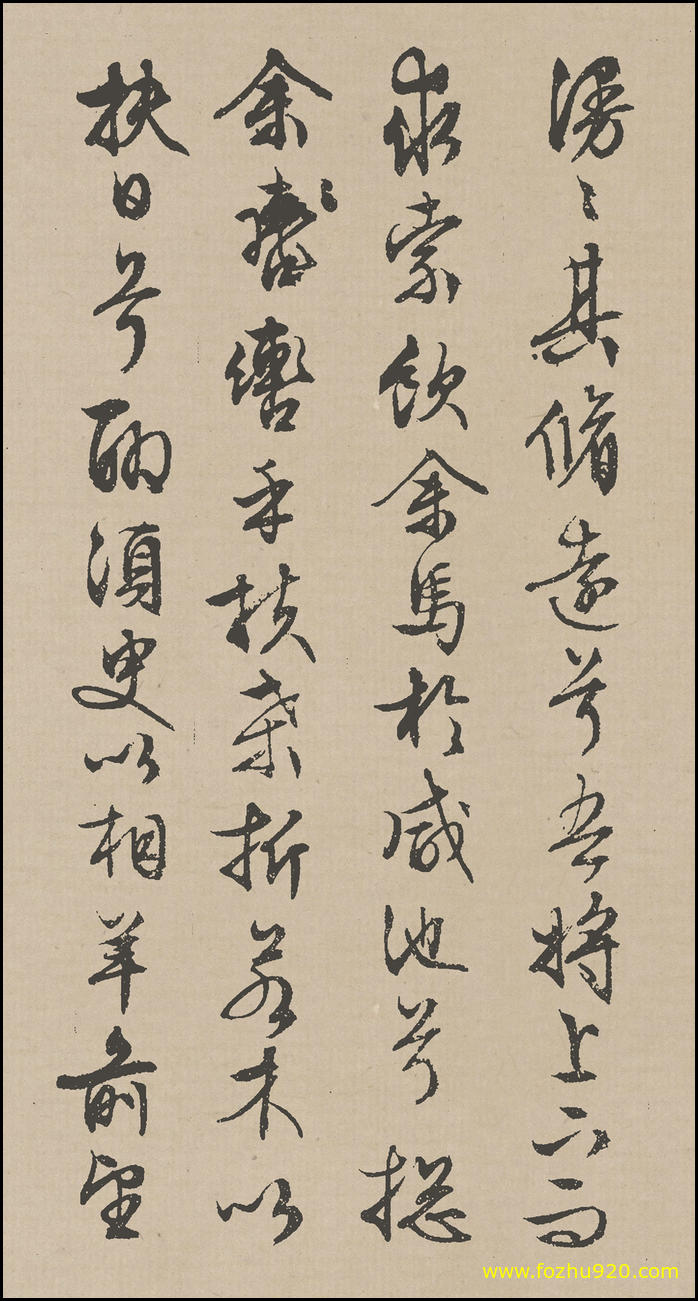 漫〻其脩遠兮吾将上下而
求索飲余馬於咸池兮揔
余轡乎扶桑折若木以
扶日兮聊須臾以相羊前望
www.fozhu920.com